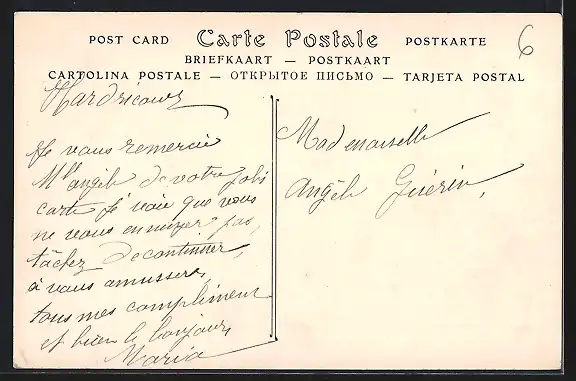 POST CARD Carte Postale POSTKARTE
BRIEFKAART — POSTKAART
CARTOLINA POSTALE — ОТКРЫТОЕ ПИСЬМО — TARJETA POSTAL
6
Hardricourt
Je vous remercie
Mlle angèle de votre jolie
carte je voie que vous
ne vous ennuyer pas,
tâchez de continuer,
à vous amusser,
tous mes compliment
et bien le bonjour,
Maria
Mademoiselle
Angèle Guérin,